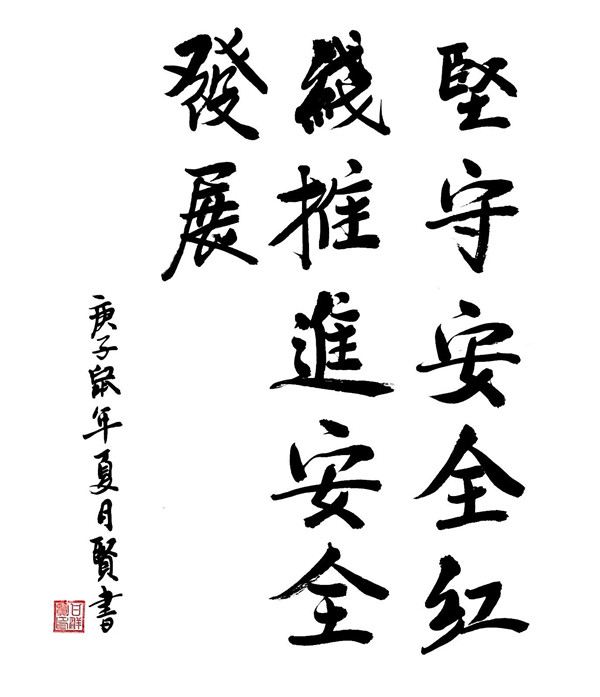 堅守安全紅
綫推進安全
發展
庚子鼠年夏月賢書